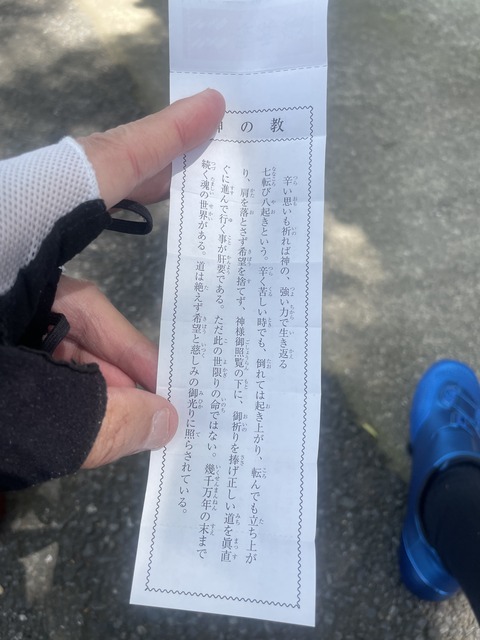 神の教
辛い思いも祈れば神の、強い力で生き返る
七転び八起きという。辛く苦しい時でも、倒れては起き上がり、転んでも立ち上が
り、肩を落とさず希望を捨てず、神様御照覧の下に、御祈りを捧げ正しい道を眞直
ぐに進んで行く事が肝要である。ただ此の世限りの命ではない。幾千万年の末まで
続く魂の世界がある。道は絶えず希望と慈しみの御光りに照らされている。